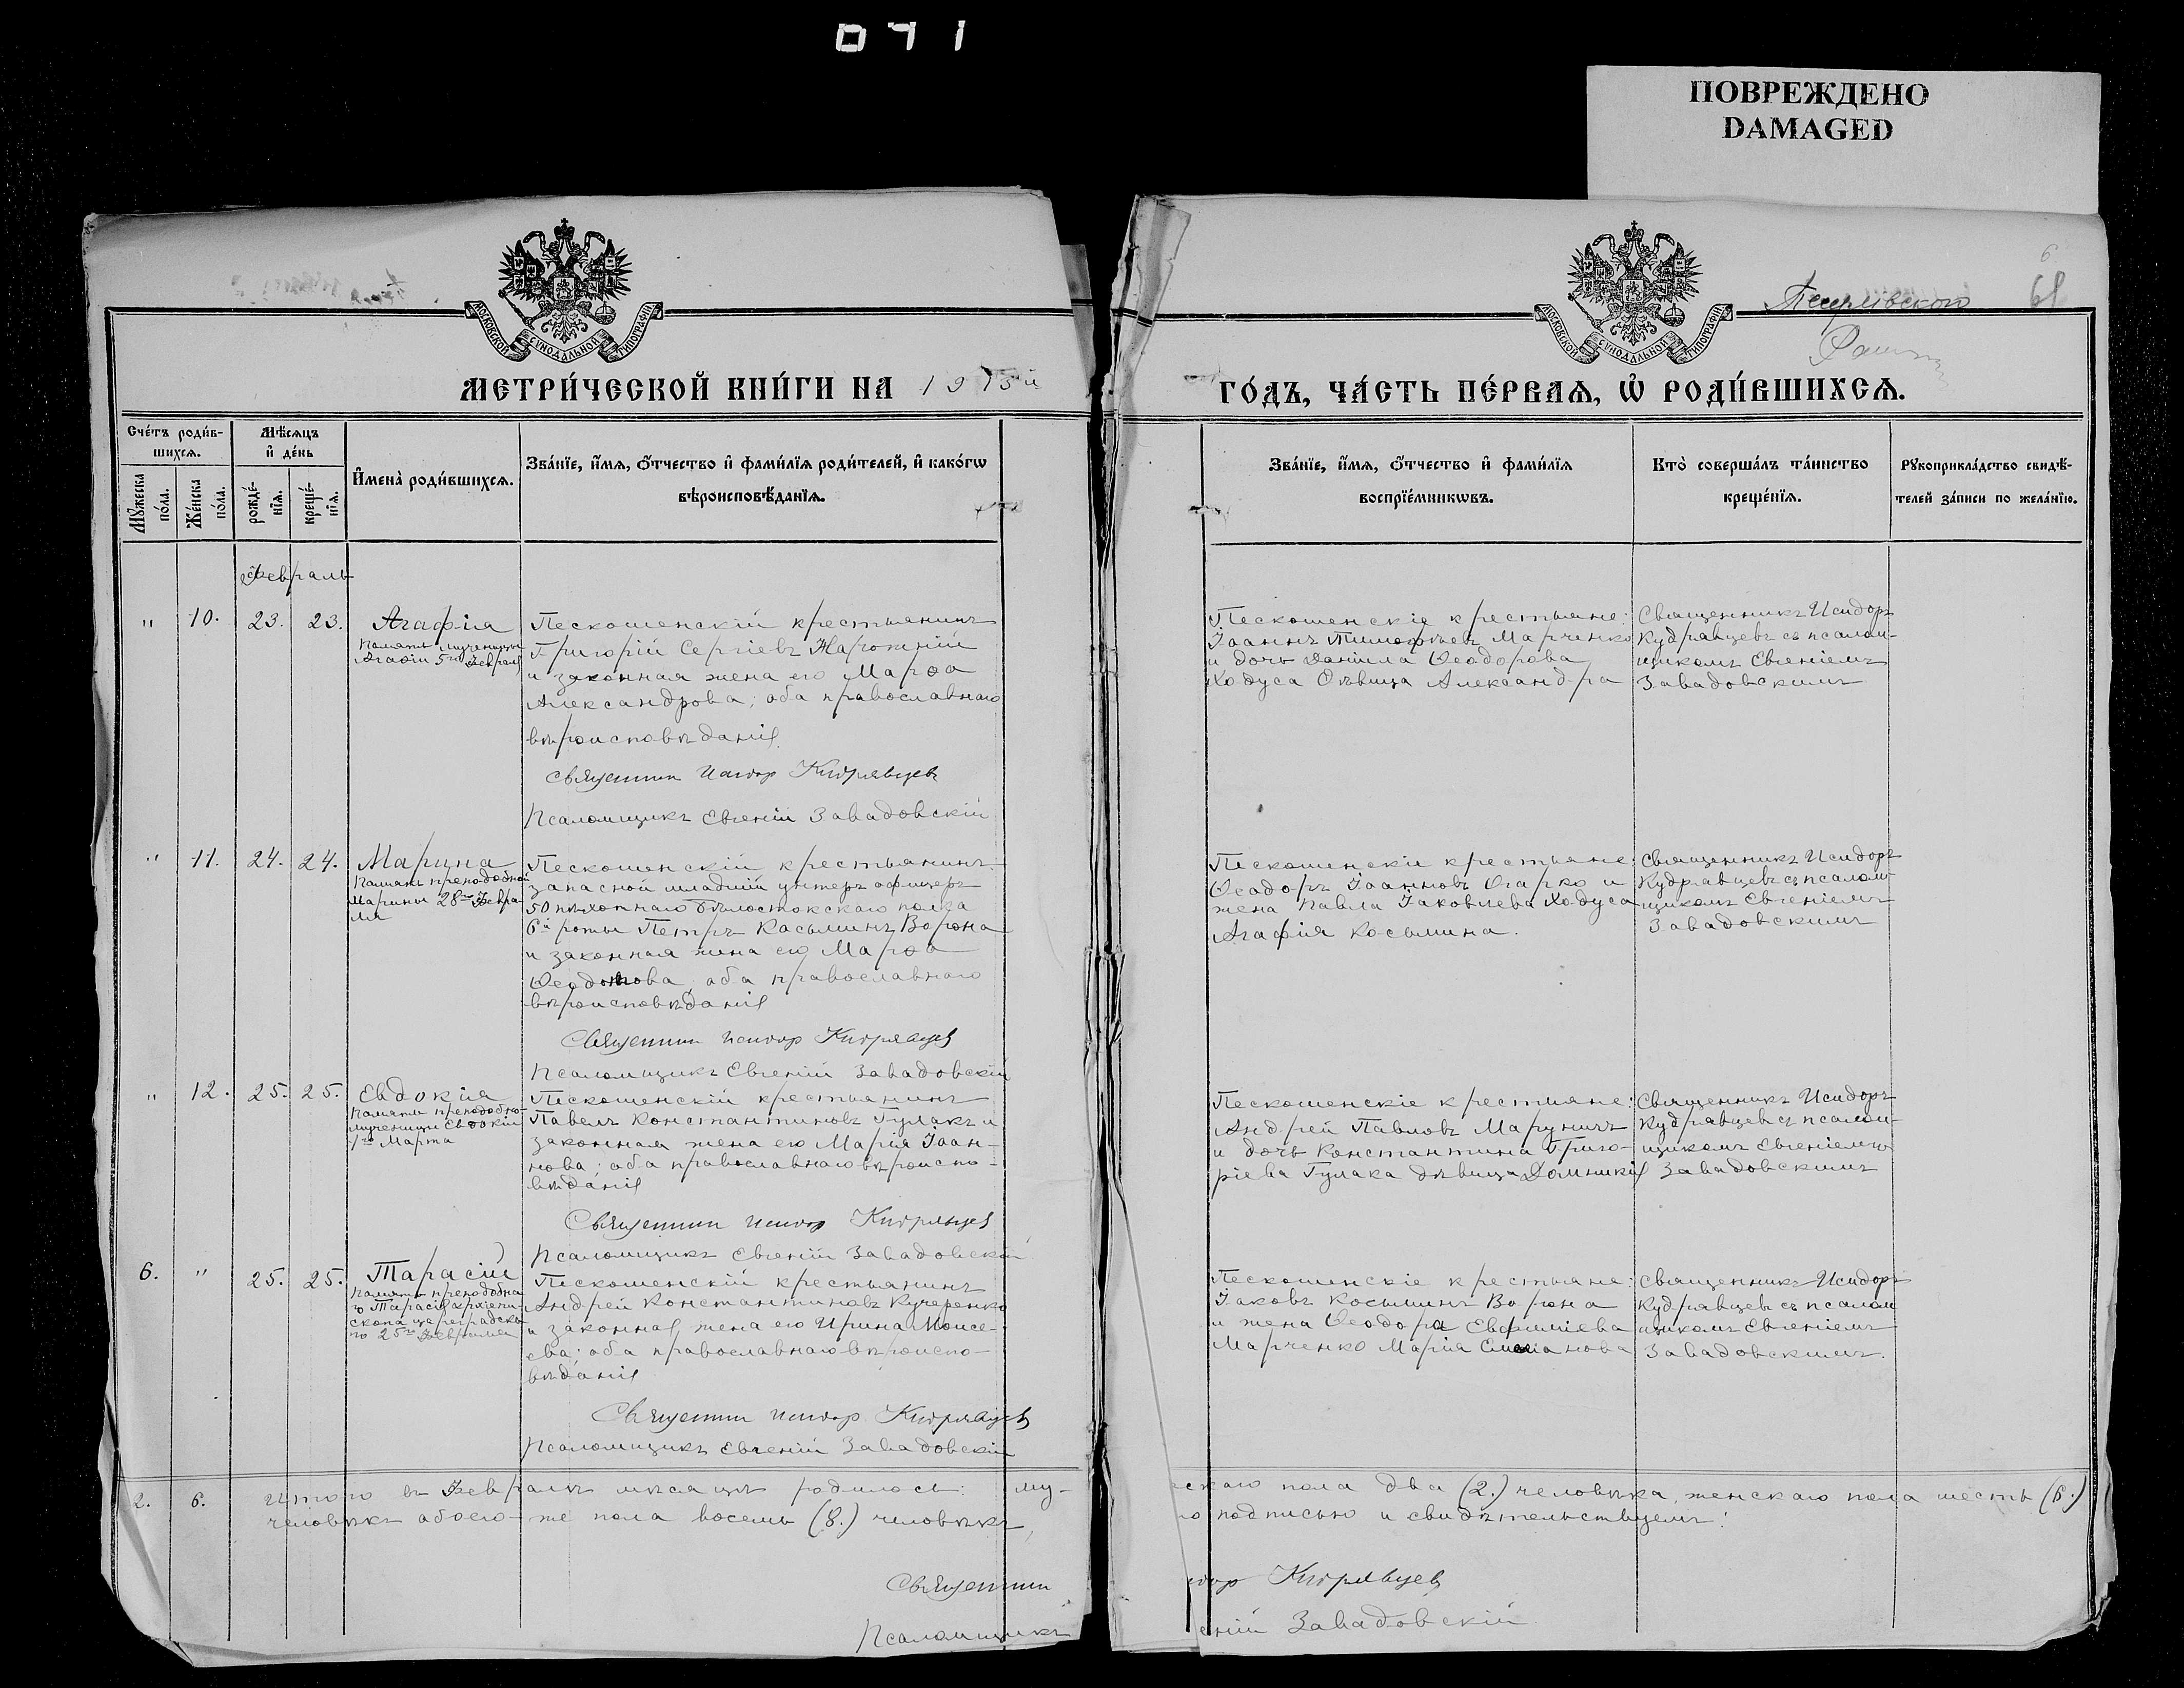 071
ПОВРЕЖДЕНО
DAMAGED
МОСКОВСКОЙ СУНОДАЛЬНОЙ ТИПОГРАФІИ
МОСКОВСКОЙ СУНОДАЛЬНОЙ ТИПОГРАФІИ
61
МЕТРИ́ЧЕСКОЙ КНИ́ГИ НА 1915й
ГО́ДЪ, ЧА́СТЬ ПЕ́РВАѦ, Ѡ҆ РОДИ́ВШИХСѦ.
Сче́тъ роди́в-
шихсѧ.
Мꙋ́жеска по́ла.
Же́нска по́ла.
Мѣ́сѧцъ
и҆ де́нь
рожде́-
нїѧ.
креще́-
нїѧ.
И҆мена̀ роди́вшихсѧ.
Зва́нїе, и҆́мѧ, ѻ҆́тчество и҆ фами́лїѧ роди́телей, и҆ како́гѡ
вѣроисповѣ́данїѧ.
Зва́нїе, и҆́мѧ, ѻ҆́тчество и҆ фами́лїѧ
воспрїе́мникѡвъ.
Кто̀ соверша́лъ та́инство
креще́нїѧ.
Рꙋкоприкла́дство свидѣ́-
телей за́писи по жела́нїю.
Февраль
" 10. 23. 23. Агафія
Память мученицы
Агафіи 5го Февраля
Пескошенскій крестьянинъ
Григорій Сергіевъ Нарожній
и законная жена его Марѳа
Александрова; оба православнаго
вѣроисповѣданія.
Священник Исидор Кудрявцев
Псаломщикъ Евгеній Завадовскій
Пескошенскіе крестьяне:
Іоаннъ Тимофѣевъ Марченко
и дочь Даніила Ѳеодорова
Ходуса дѣвица Александра
Священникъ Исидоръ
Кудрявцевъ съ псалом-
щикомъ Евгеніемъ
Завадовскимъ
" 11. 24. 24. Марина
Память преподобной
Марины 28го Февра-
ля
Пескошенскій крестьянинъ
запасной младшій унтеръ офицеръ
50 пѣхотнаго Бѣлостокскаго полка
6й роты Петръ Касьминъ Ворона
и законная жена его Марѳа
Ѳеодотова, оба православнаго
вѣроисповѣданія
Священник Исидор Кудрявцев
Псаломщикъ Евгеній Завадовскій
Пескошенскіе крестьяне:
Ѳеодоръ Іоанновъ Огарко и
жена Павла Іаковлева Ходуса
Агафія Косьмина.
Священникъ Исидоръ
Кудрявцевъ съ псалом-
щикомъ Евгеніемъ
Завадовскимъ
" 12. 25. 25. Евдокія
Память преподобно-
мученицы Евдокіи
1го Марта
Пескошенскій крестьянинъ
Павелъ Константиновъ Гулакъ и
законная жена его Марія Іоан-
нова; оба православнаго вѣроиспо-
вѣданія
Священник Исидор Кудрявцев
Псаломщикъ Евгеній Завадовскій
Пескошенскіе крестьяне:
Андрей Павловъ Маруничъ
и дочь Константина Григо-
ріева Гулака дѣвица Домникія
Священникъ Исидоръ
Кудрявцевъ съ псалом-
щикомъ Евгеніемъ
Завадовскимъ
6. " 25. 25. Тарасій
Память преподобна
го Тарасія архіепи-
скопа цареградска-
го 25го Февраля
Пескошенскій крестьянинъ
Андрей Константиновъ Кучеренко
и законная жена его Ирина Моисе-
ева; оба православнаго вѣроиспо-
вѣданія
Священник Исидор Кудрявцев
Псаломщикъ Евгеній Завадовскій
Пескошенскіе крестьяне:
Іаковъ Косьминъ Ворона
и жена Ѳеодора Евфиміева
Марченко Марія Симеонова
Священникъ Исидоръ
Кудрявцевъ съ псалом
щикомъ Евгеніемъ
Завадовскимъ.
2. 6. Итого въ Февралѣ мѣсяцѣ родилось: му-
скаго пола два (2.) человѣка, женскаго пола шесть (6.)
человѣкъ обоего-же пола восемь (8.) человѣкъ,
подписью и свидѣтельствуемъ:
Священник
дор Кудрявцев
Псаломщикъ
еній Завадовскій